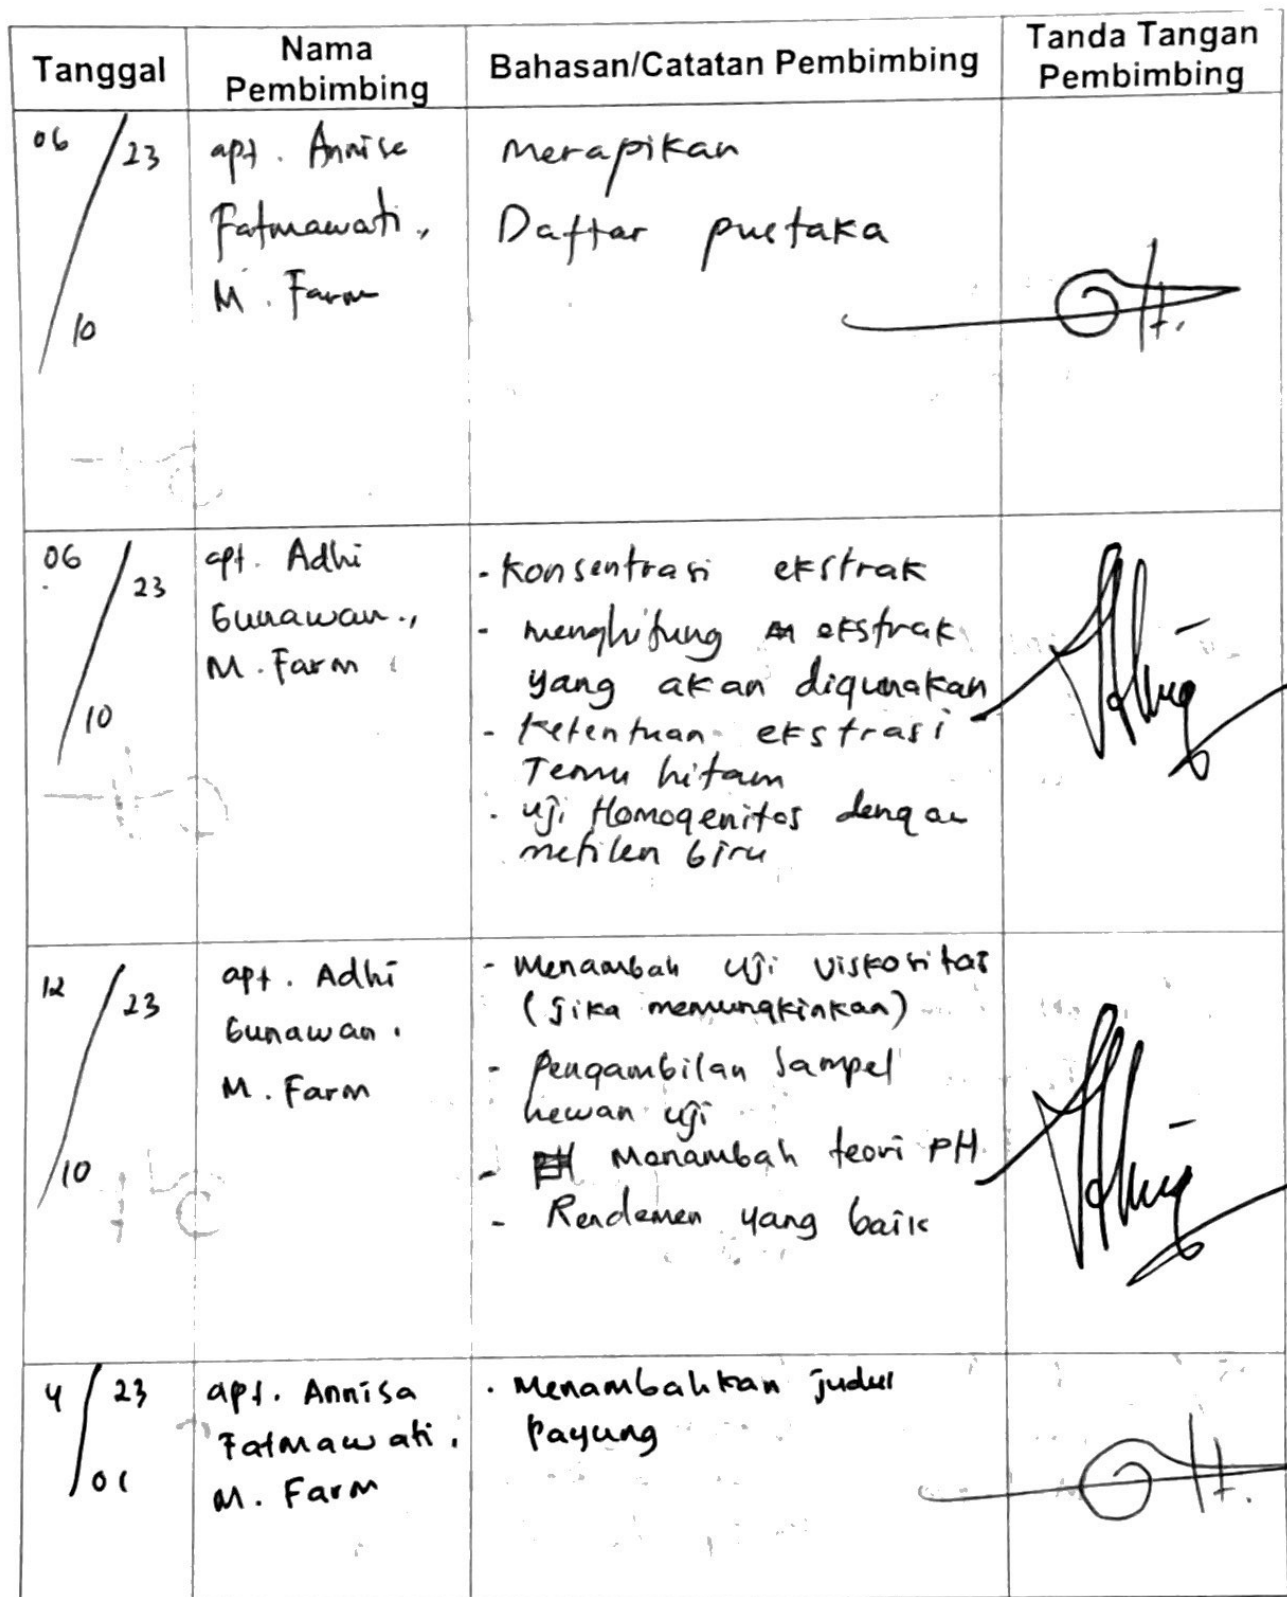 Tanggal
Nama
Pembimbing
Bahasan/Catatan Pembimbing
Tanda Tangan
Pembimbing
06 / 23
10
apt. Annisa
Fatmawati.,
M. Farm
Merapikan
Daftar pustaka
06 / 23
10
apt. Adhi
Gunawan.,
M. Farm
- Konsentrasi ekstrak
- menghitung ekstrak
yang akan digunakan
- Ketentuan ekstrasi
Temu hitam
- Uji Homogenitas dengan
metilen biru
12 / 23
10
apt. Adhi
Gunawan.
M. Farm
- Menambah Uji Viskositas
(Jika memungkinkan)
- Pengambilan Sampel
hewan uji
- Menambah teori PH
- Rendemen yang baik
4 / 23
01
apt. Annisa
Fatmawati.
M. Farm
- Menambahkan judul
Payung